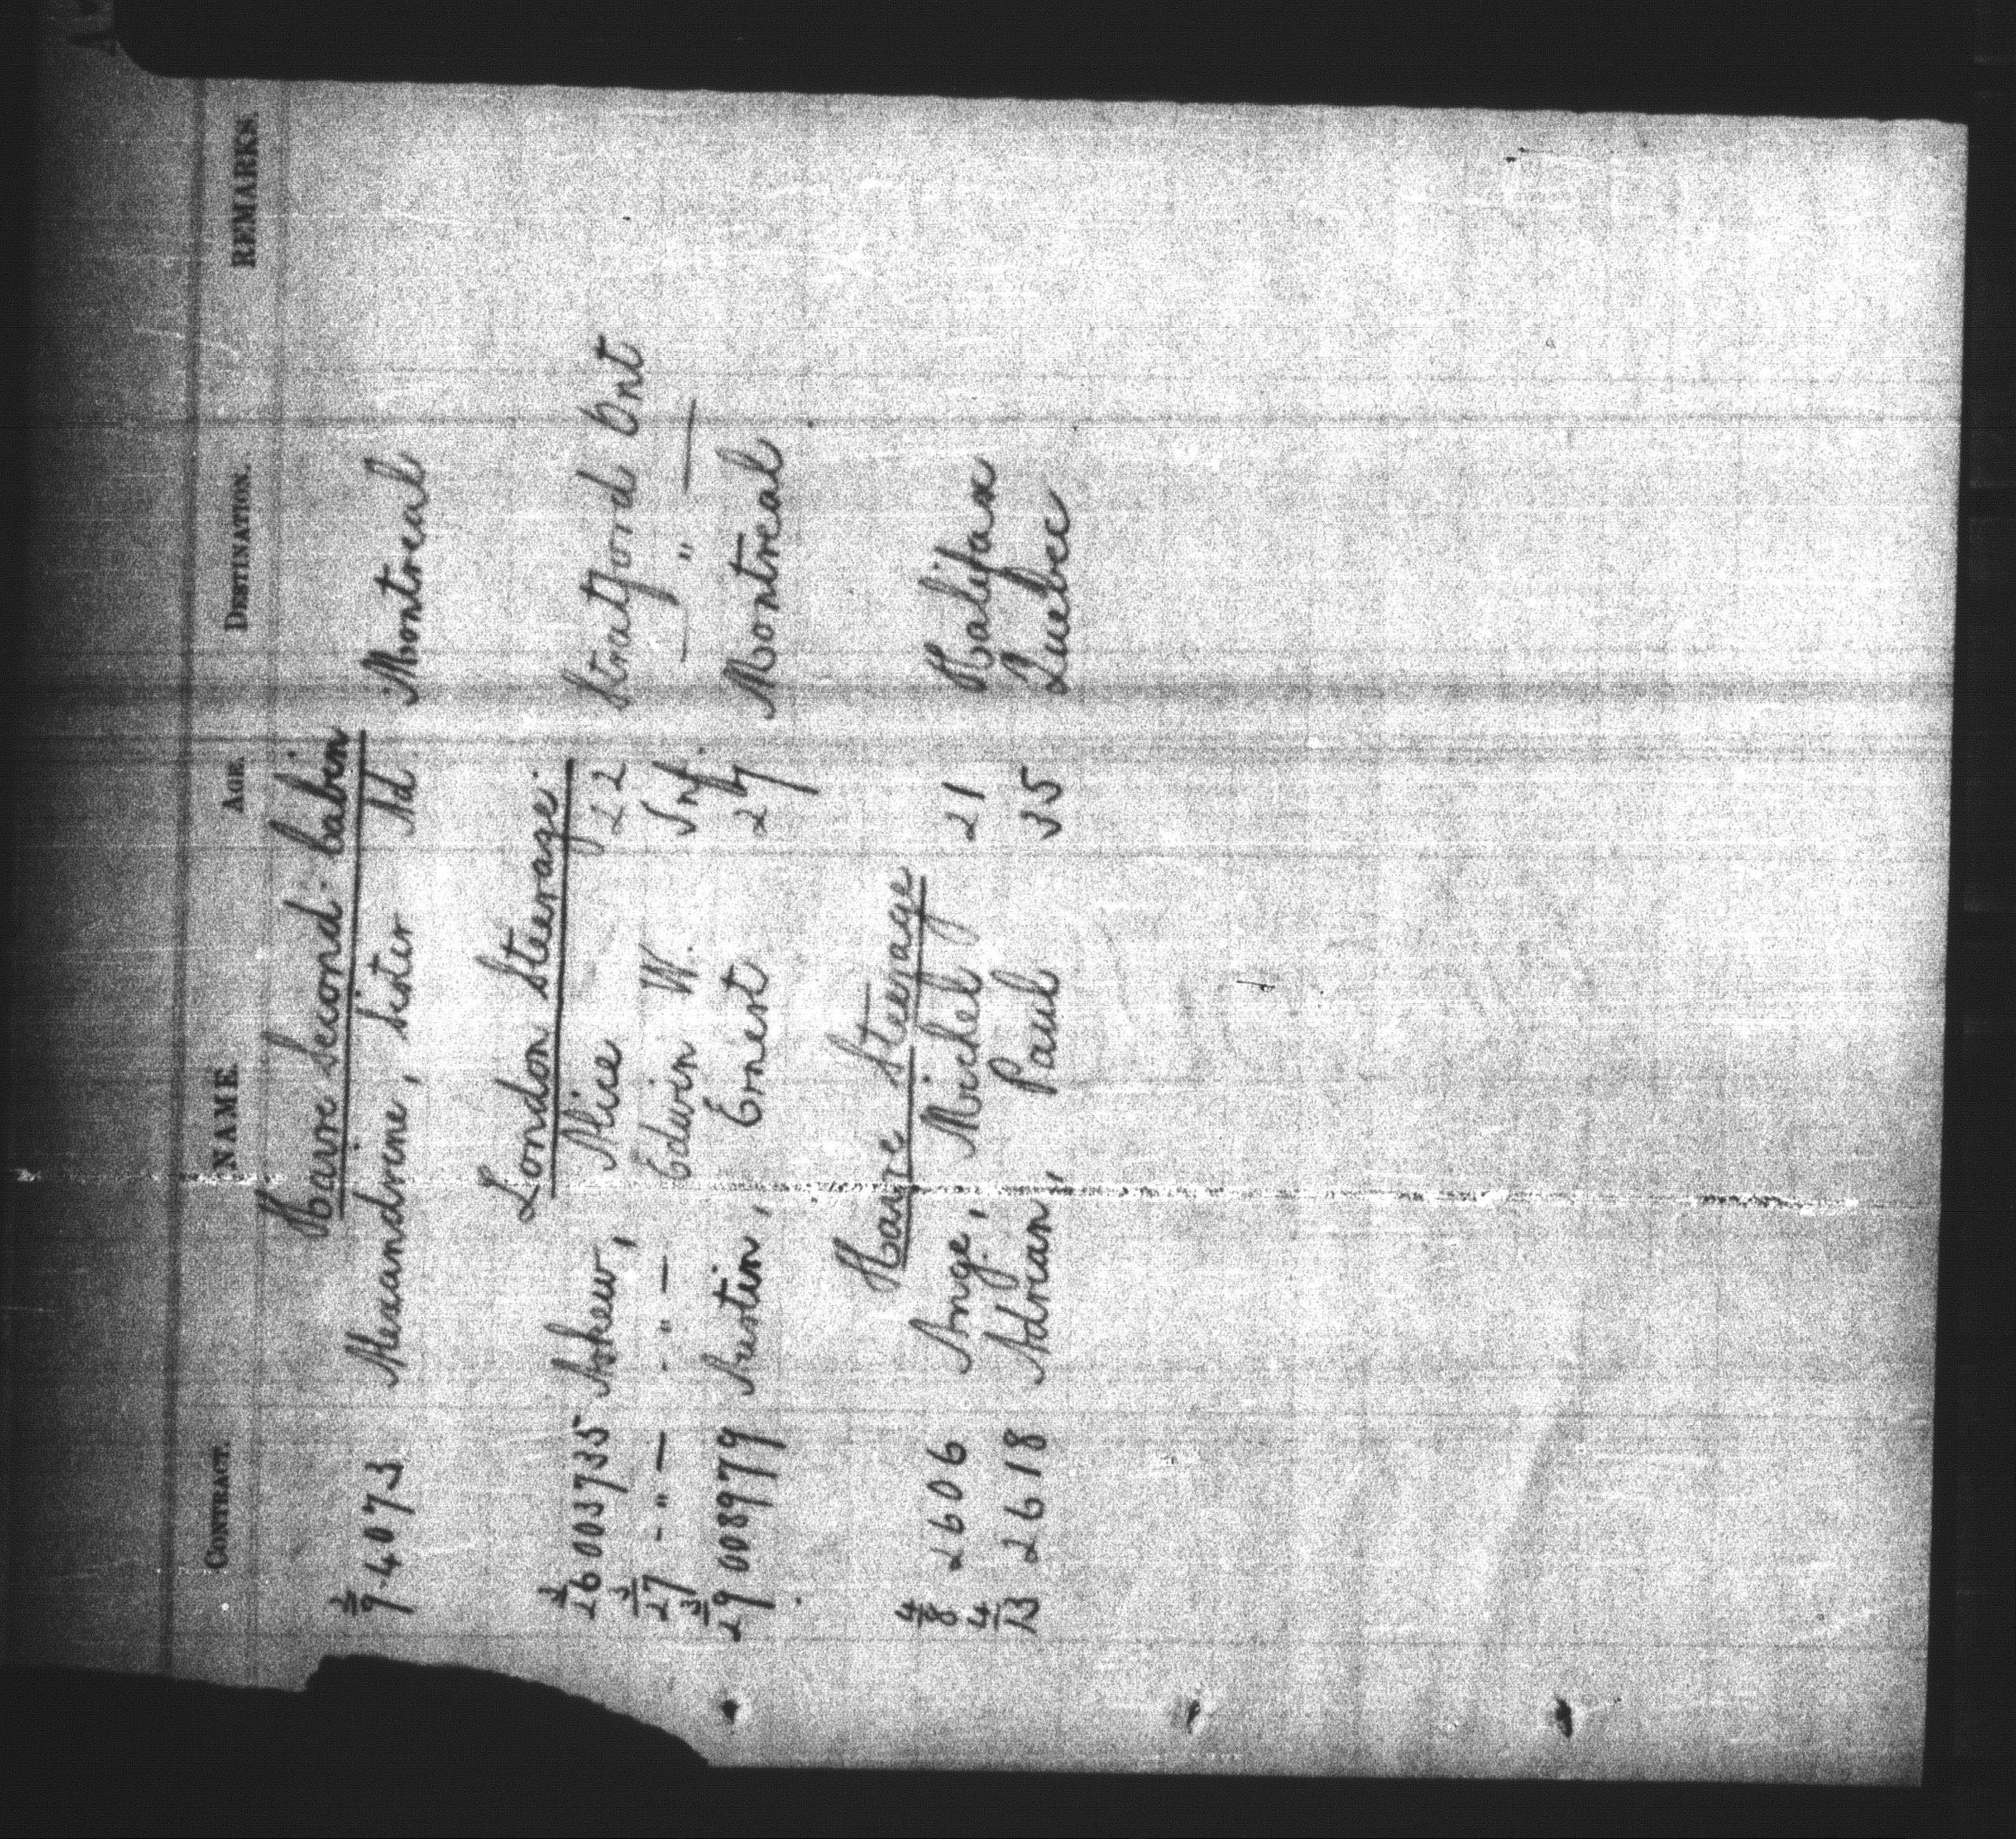 A
CONTRACT. NAME. AGE. DESTINATION. REMARKS.
Havre Second-Cabin
2/9 4073 Alexandrine, Sister Ad. Montreal
London Steerage.
2/26 003735 Askew, Alice 22 Stratford Ont
2/27 -"- -"- Edwin W. Inf. -"-
3/29 008979 Austin, Ernest 27 Montreal
Havre Steerage
4/8 2606 Ange, Michel 21 Halifax
4/13 2618 Adrian, Paul 35 Quebec